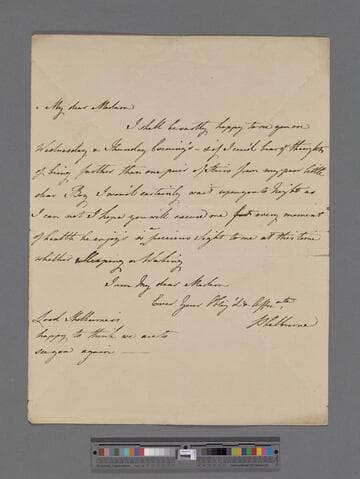 My dear Madam
I shall be vastly happy to see you on
Wednesday & Thursday Evening's - & if I could bear ye thoughts
of being further than one pair of stairs from my poor little
dear Boy I would certainly wait upon you to Night as
I can not I hope you will excuse me for every moment
of health he enjoys is precious & light to me at this time
whether Sleeping or Waking
I am My dear Madam
Ever Your Oblig'd & Affte
Shelburne
Lord Shelburne is
happy to think we are to
see you again